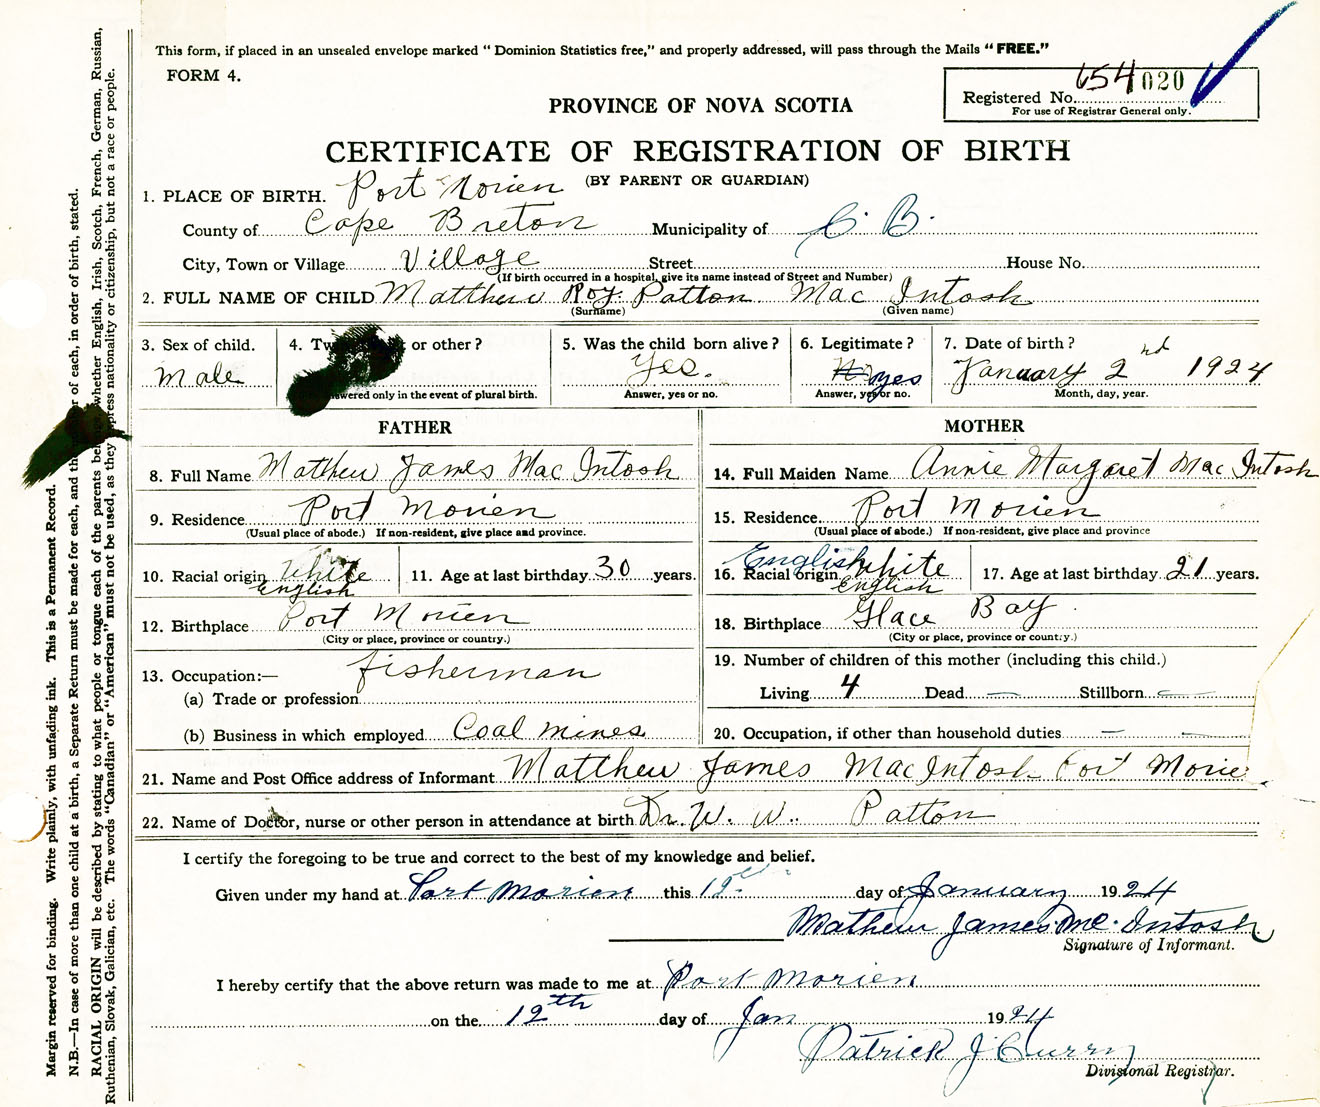 This form, if placed in an unsealed envelope marked " Dominion Statistics free," and properly addressed, will pass through the Mails " FREE."
FORM 4.
Registered No. 654020
For use of Registrar General only.
PROVINCE OF NOVA SCOTIA
CERTIFICATE OF REGISTRATION OF BIRTH
(BY PARENT OR GUARDIAN)
1. PLACE OF BIRTH. Port Morien
County of Cape Breton Municipality of C. B.
City, Town or Village Village Street House No.
(If birth occurred in a hospital, give its name instead of Street and Number)
2. FULL NAME OF CHILD Matthew Roy. Patton Mac Intosh
(Surname) (Given name)
3. Sex of child. Male
4. or other?
answered only in the event of plural birth.
5. Was the child born alive? Yes.
Answer, yes or no.
6. Legitimate? No yes
Answer, yes or no.
7. Date of birth? January 2nd 1924
Month, day, year.
FATHER
8. Full Name Matthew James Mac Intosh
9. Residence Port Morien
(Usual place of abode.) If non-resident, give place and province.
10. Racial origin White English
11. Age at last birthday 30 years.
12. Birthplace Port Morien
(City or place, province or country.)
13. Occupation:— fisherman
(a) Trade or profession
(b) Business in which employed Coal mines
MOTHER
14. Full Maiden Name Annie Margaret Mac Intosh
15. Residence Port Morien
(Usual place of abode.) If non-resident, give place and province
16. Racial origin English white English
17. Age at last birthday 21 years.
18. Birthplace Glace Bay
(City or place, province or country.)
19. Number of children of this mother (including this child.)
Living 4 Dead — Stillborn —
20. Occupation, if other than household duties —
21. Name and Post Office address of Informant Matthew James MacIntosh Port Morie
22. Name of Doctor, nurse or other person in attendance at birth Dr. W. W. Patton
I certify the foregoing to be true and correct to the best of my knowledge and belief.
Given under my hand at Port Morien this 12 day of January 1924
Mathew James Mc. Intosh
Signature of Informant.
I hereby certify that the above return was made to me at Port Morien
on the 12th day of Jan 1924
Patrick J Curry
Divisional Registrar.
Margin reserved for binding. Write plainly, with unfading ink. This is a Permanent Record.
N.B.—In case of more than one child at a birth, a Separate Return must be made for each, and the of each, in order of birth, stated.
RACIAL ORIGIN will be described by stating to what people or tongue each of the parents whether English, Irish, Scotch, French, German, Russian,
Ruthenian, Slovak, Galician, etc. The words "Canadian" or "American" must not be used, as they express nationality or citizenship, but not a race or people.